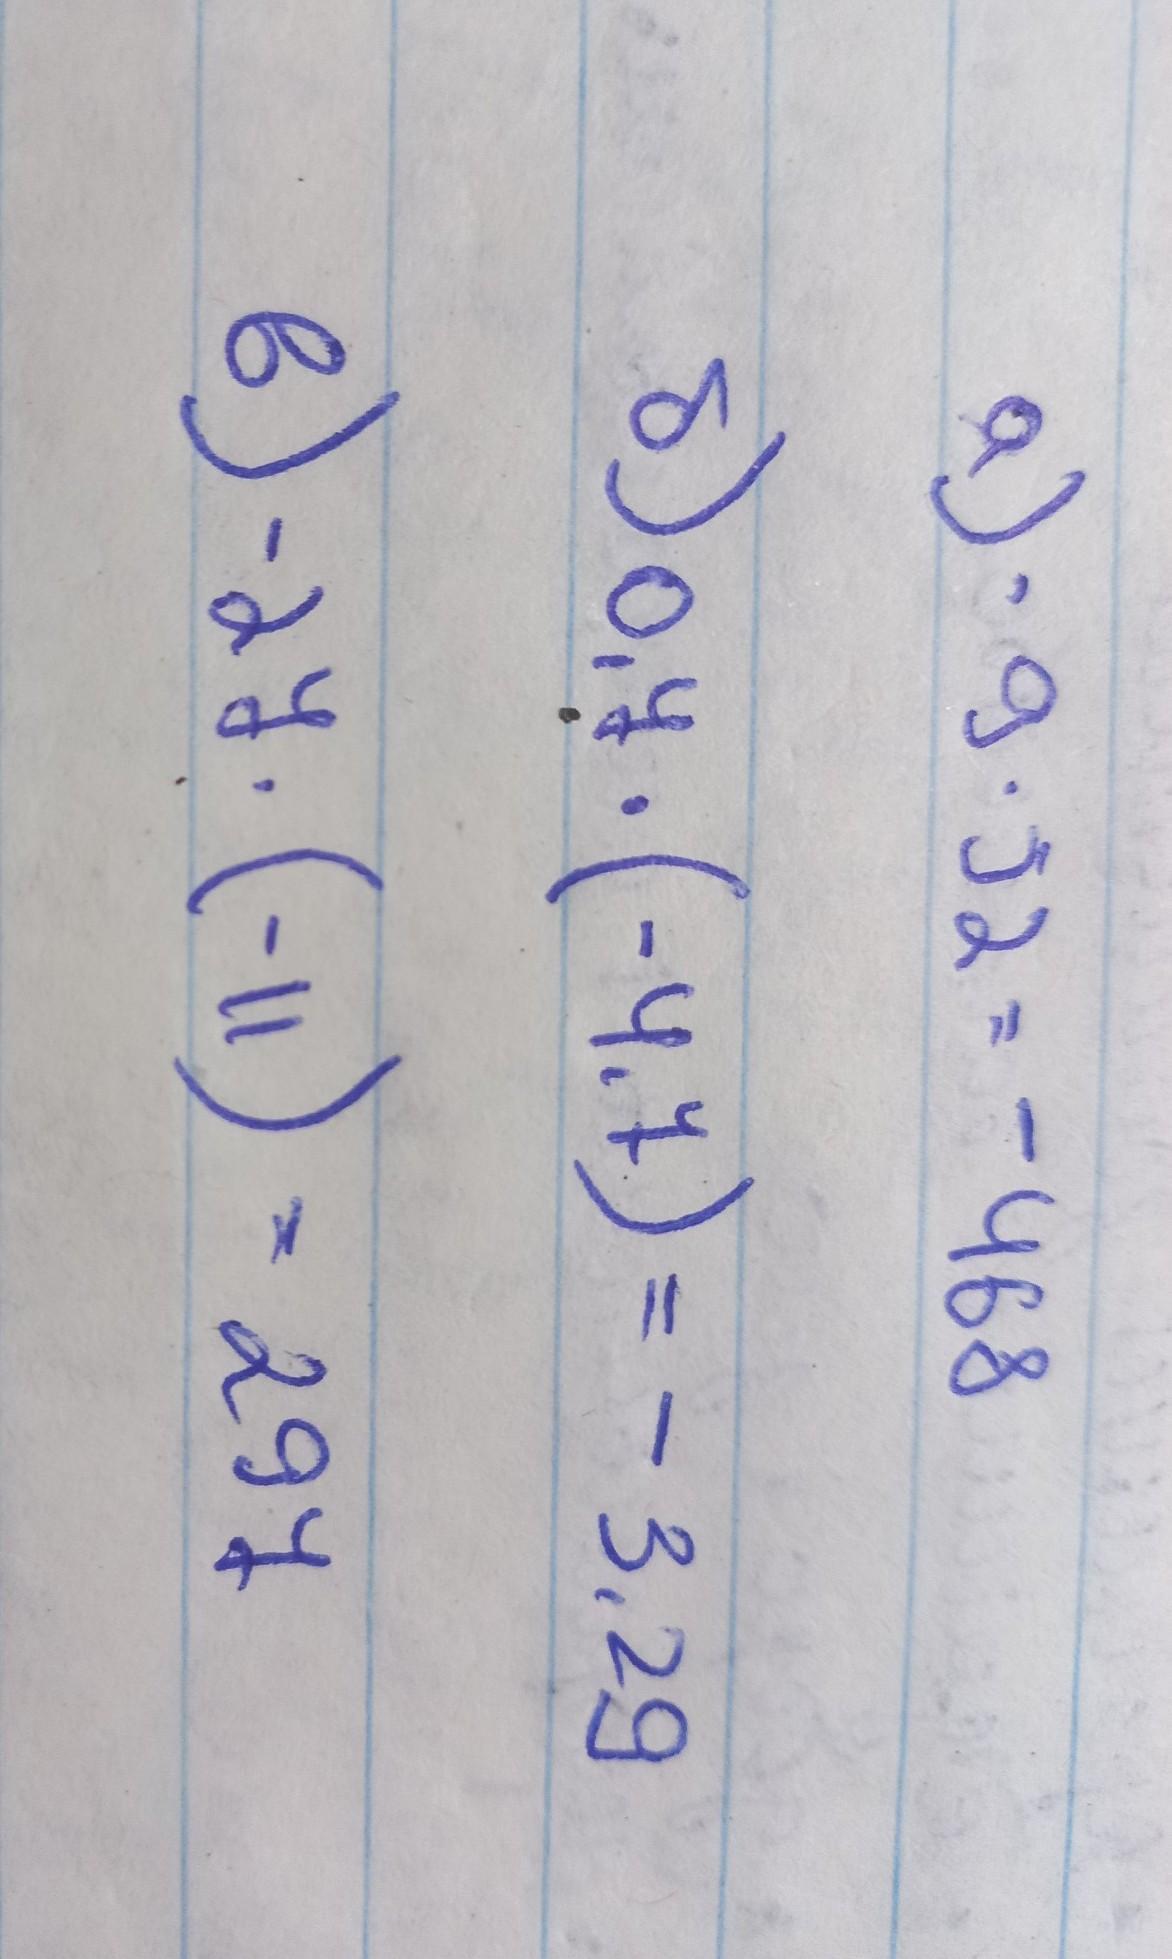 а) -9 · 52 = -468
б) 0,7 · (-4,7) = -3,29
в) -27 · (-11) = 297